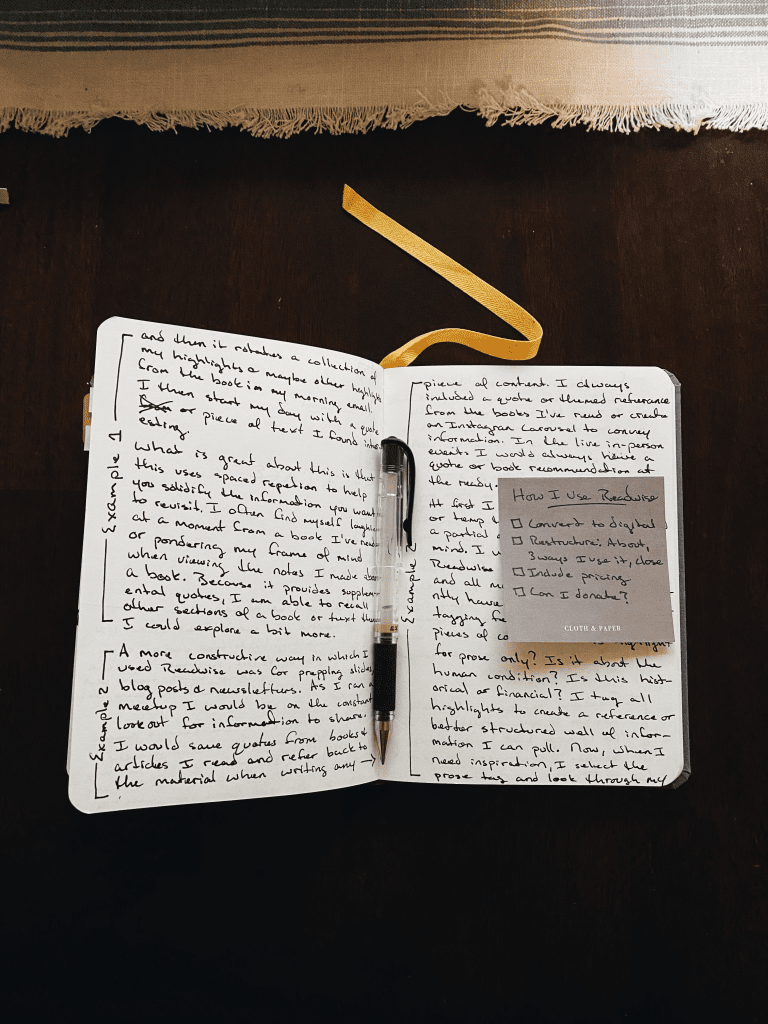 and then it rotates a collection of
my highlights & maybe other highlights
from the book in my morning email.
I then start my day with a quote
or piece of text I found inter-
esting.
What is great about this is that
this uses spaced repetion to help
you solidify the information you want
to revisit. I often find myself laughing
at a moment from a book I've read
or pondering my frame of mind
when viewing the notes I made about
a book. Because it provides supplem-
ental quotes, I am able to recall
other sections of a book or text that
I could explore a bit more.
Example 1
A more constructive way in which I
used Readwise was for prepping slides,
blog posts & newsletters. As I ran a
meetup I would be on the constant
lookout for information to share.
I would save quotes from books &
articles I read and refer back to
the material when writing any →
Example 2
piece of content. I always
included a quote or themed referance
from the books I've read or create
an Instagram Carousel to convey
information. In the live in-person
events I would always have a
quote or book recommendation at
the ready.
At first I
or temp
a partial
mind. I
Readwise
and all
ntly have
tagging
pieces of
highlight
for prose only? Is it about the
human condition? Is this hist-
orical or financial? I tag all
highlights to create a reference or
better structured well of infor-
mation I can pull. Now, when I
need inspiration, I select the
prose tag and look through my
Example 2
How I Use Readwise
Convert to digital
Restructure: About,
3 ways I use it, close
Include pricing
Can I donate?
CLOTH & PAPER